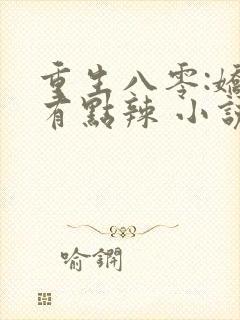 重生八零:嬌
有點辣 小說
喻鐦